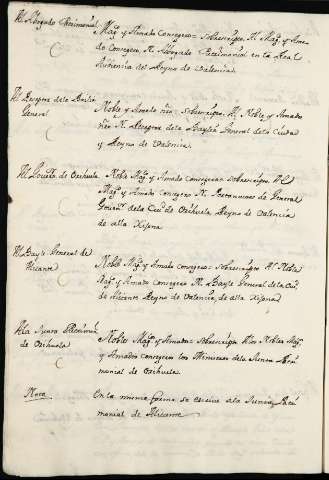 Al Abogado Patrimonial
Magᶜᵒ y Amado Consegero: Sobrescripto. Al Magᶜᵒ y Ama-
do Consegero N. Abogado Patrimonial en la Real
Audiencia del Reyno de Valencia
Al Receptor dela Bailia
General
Noble y Amado nro: Sobrescripto. Al Noble y Amado
nro N. Receptor dela Baylia General dela Ciudad
y Reyno de Valencia.
de Orihuela
Noble Magᶜᵒ y Amado Consegero: Sobrescripto. Al
Magᶜᵒ y Amado Consegero N. de General
dela Ciud de Orihuela Reyno de Valencia
de alla Xijona
Al Bayle General de
Alicante
Noble Magᶜᵒ y Amado Consegero: Sobrescripto. Al Noble
Magᶜᵒ y Amado Consegero N. Bayle General dela Ciud
de Alicante Reyno de Valencia, de alla Xijona
Ala Junta Patrimonial
de Orihuela
Nobles Magᶜᵒˢ y Amados: Sobrescripto. A los Nobles Magᶜᵒˢ
y Amados Consegeros los Ministros dela Junta Patri-
monial de Orihuela.
Nota
En la misma forma se escrive ala Junta Patri-
monial de Alicante.